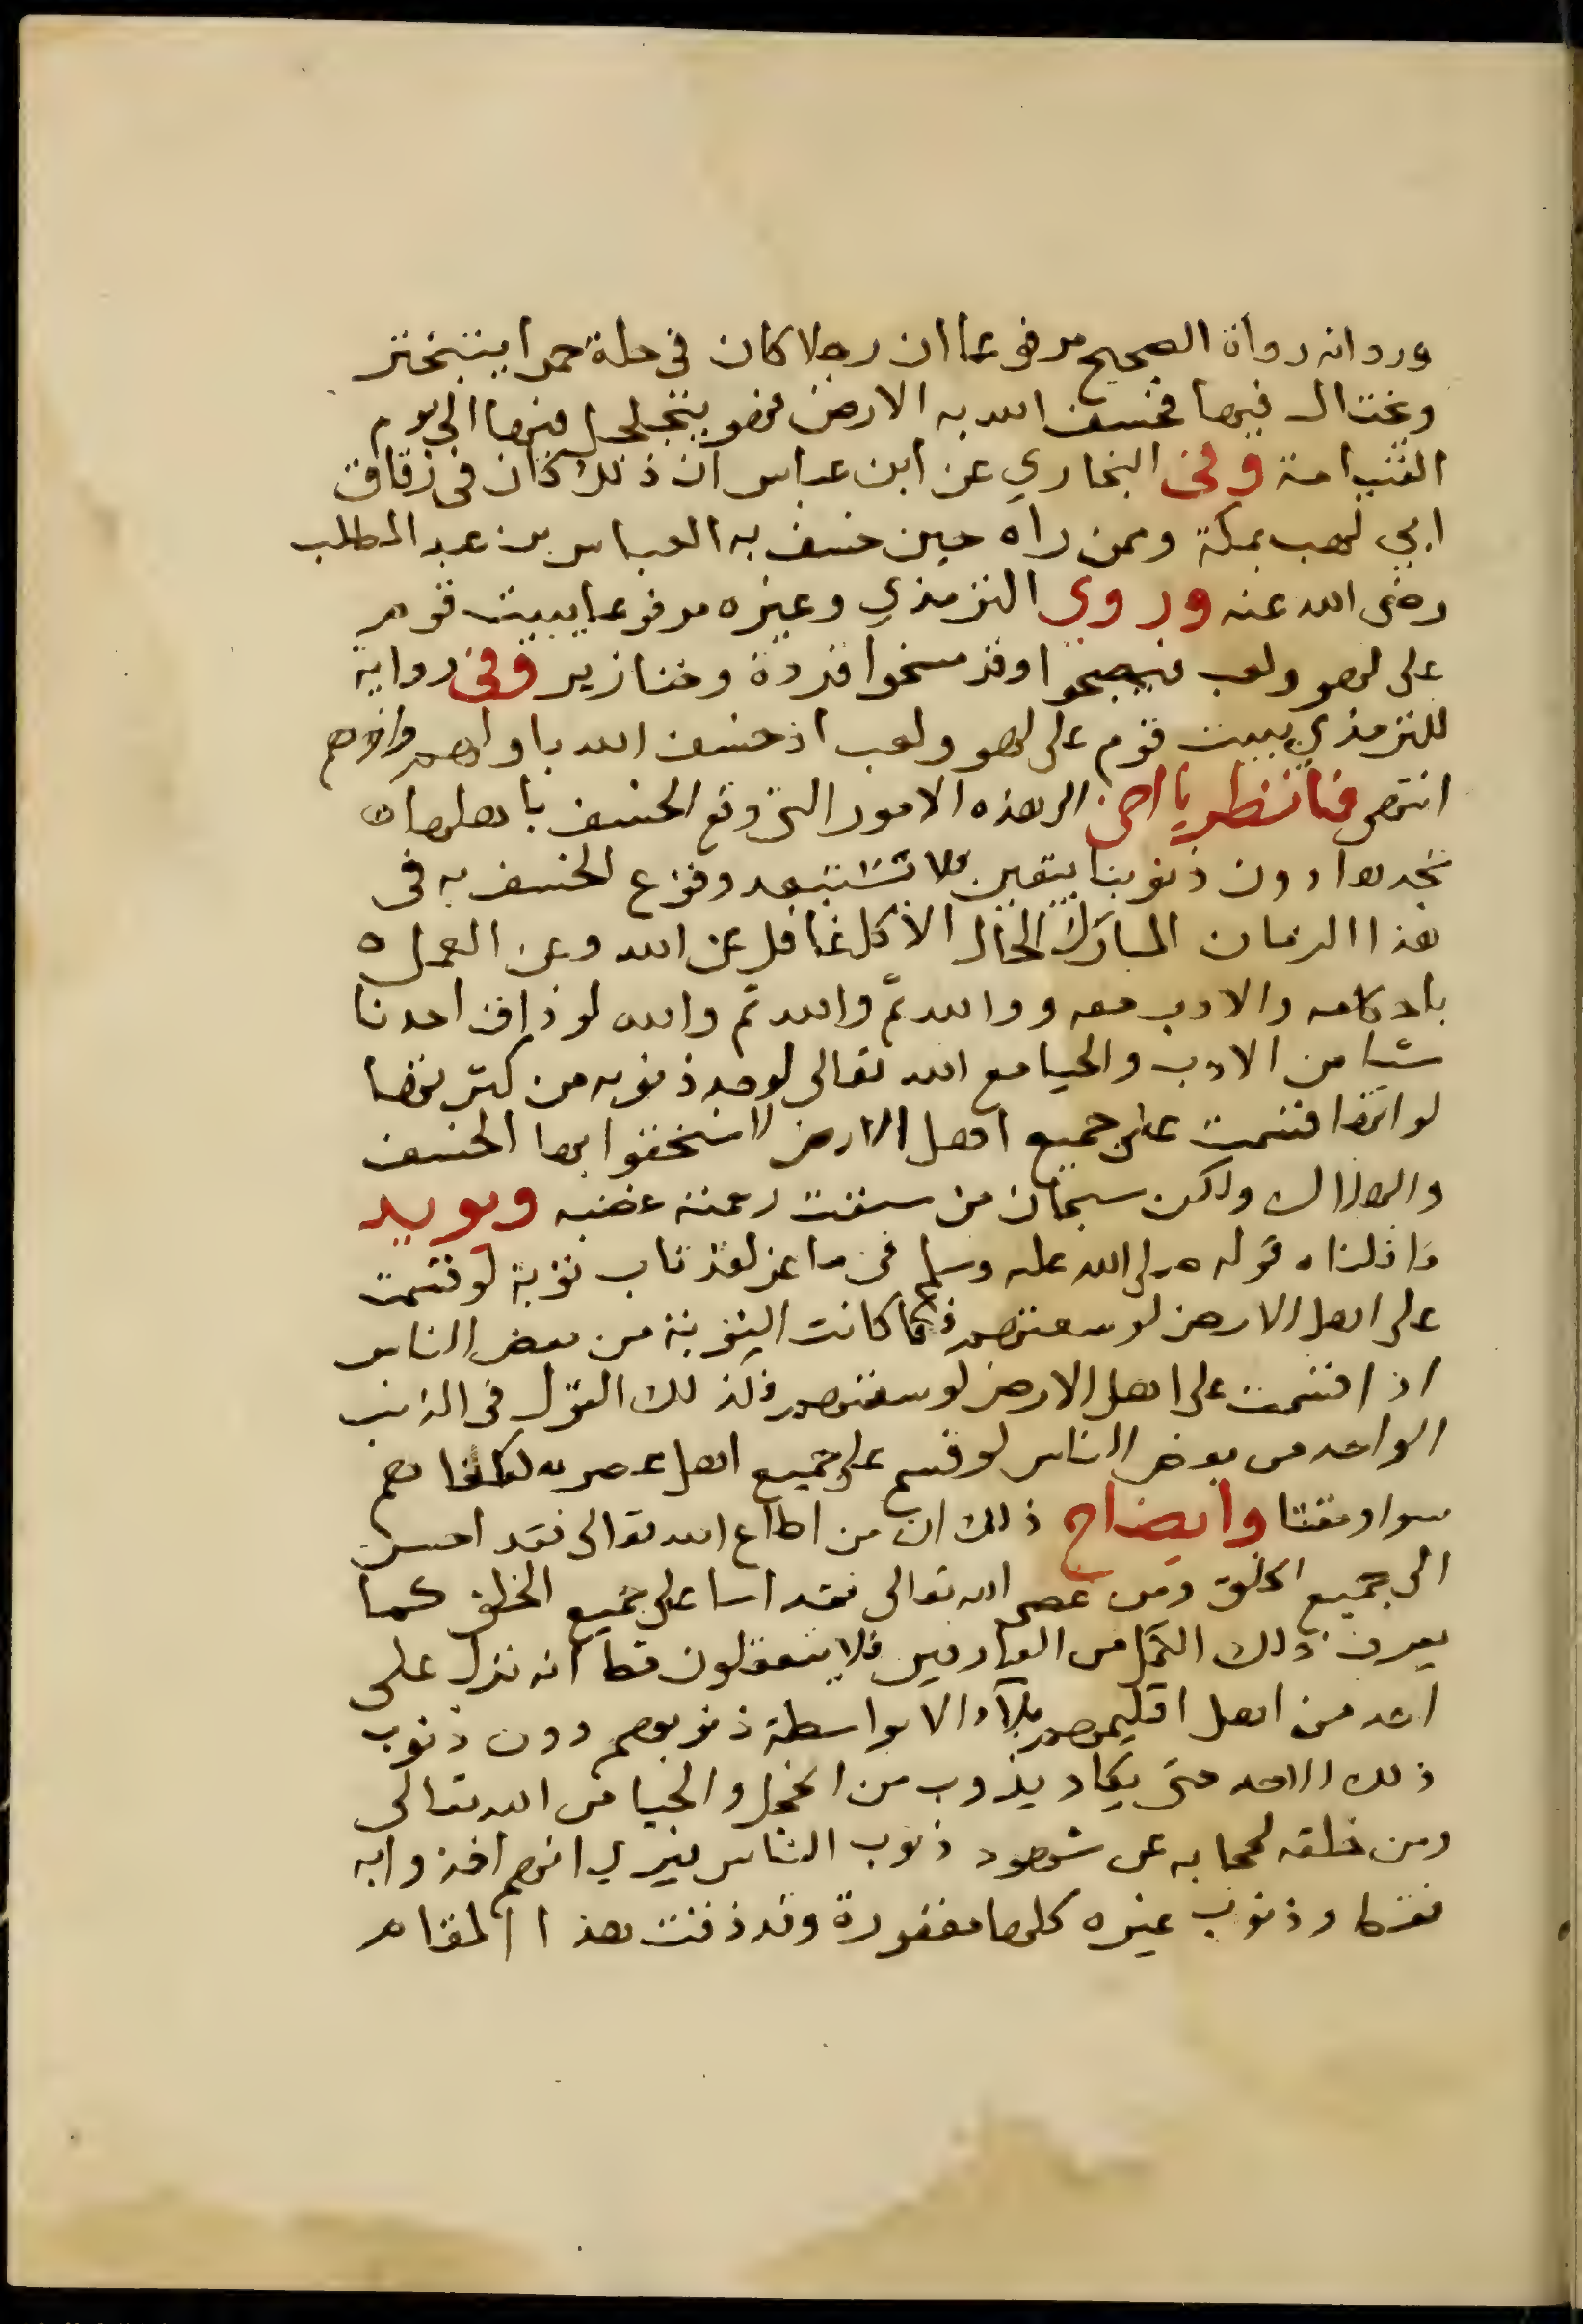 ورواته رواة الصحيح مرفوعا ان رجلا كان في حلة حمرا يتبختر
ويختال فيها فخسف الله به الارض فهو يتجلجل فيها الى يوم
القيامة وفي البخاري عن ابن عباس ان ذلك كان في زقاق
ابي لهب بمكة وممن رآه حين خسف به العباس بن عبد المطلب
رضى الله عنه وروي الترمذي وغيره مرفوعا يبيت قوم
على لهو ولعب فيصبحوا وقد مسخوا قردة وخنازير وفي رواية
للترمذي يبيت قوم على لهو ولعب اذ خسف الله باولهم واخرهم
انتهى فانظر يا اخي الى هذه الامور التي وقع الخسف باهلها
تجدها دون ذنوبنا بيقين فلا تستبعد وقوع الخسف به فى
هذا الزمان المبارك الحال الا كل غافل عن الله وعن العمل
باحكامه والادب معه ووالله ثم والله ثم والله لو ذاق احدنا
شيا من الادب والحيا مع الله تعالى لوجد ذنوبه من كثرتها
لو انها قسمت على جميع اهل الارض لاستحقوا بها الخسف
والهلاك ولكن سبحان من سبقت رحمته غضبه ويويد
ما قلناه قوله صلى الله عليه وسلم فى ماعز لقد تاب توبة لو قسمت
على اهل الارض لوسعتهم فكما كانت التوبة من بعض الناس
اذا قسمت على اهل الارض لوسعتهم فكذلك القول فى الذنب
الواحد من بعض الناس لو قسم على جميع اهل عصره لكفاهم
سوا ومقتا وايضاح ذلك ان من اطاع الله تعالى فقد احسن
الى جميع الخلق ومن عصى الله تعالى فقد اسا على جميع الخلق كما
يعرف ذلك الكمل من العارفين فلا يتعقلون قط انه نزل على
احد من اهل اقليمهم بلاء الا بواسطة ذنوبهم دون ذنوب
ذلك الاحد حتى يكاد يذوب من الخجل والحيا من الله تعالى
ومن خلقه لحجابه عن شهود ذنوب الناس فيرى انهم اخذوا به
فقط وذنوب غيره كلها مغفورة وقد ذقت هذا المقام